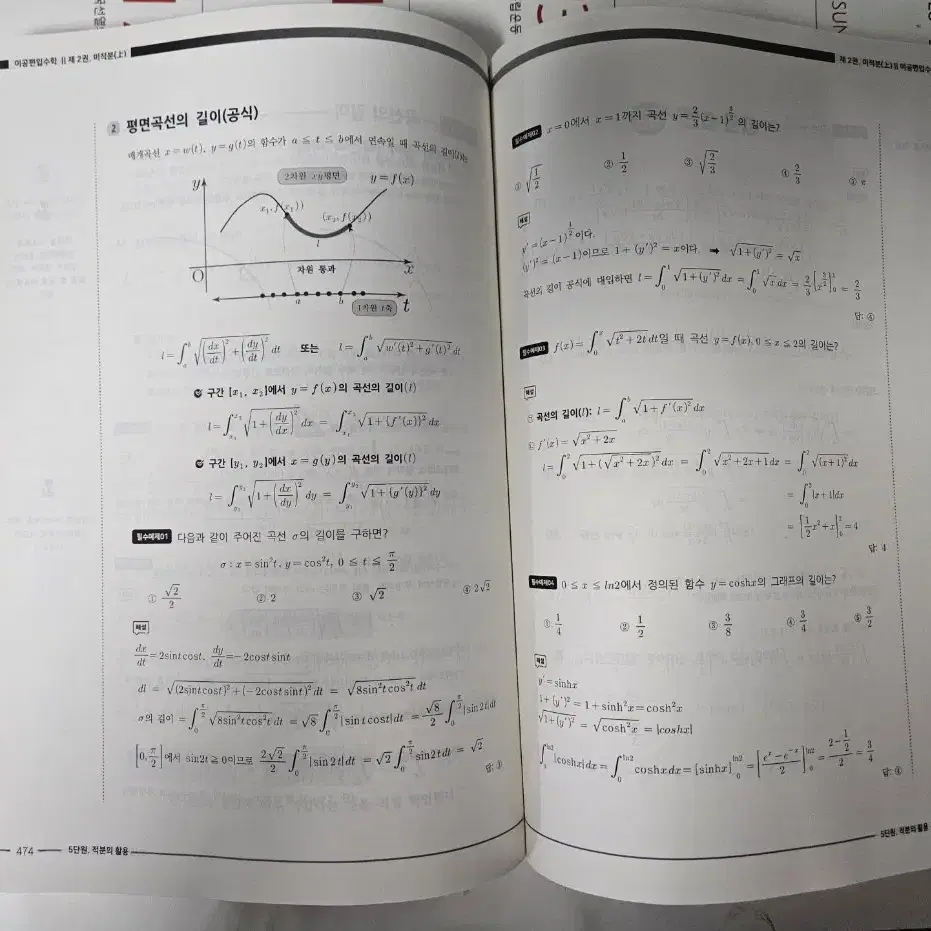 이공편입수학 || 제 2권. 미적분(上)
2 평면곡선의 길이(공식)
매개곡선 x = w(t), y = g(t)의 함수가 a ≤ t ≤ b에서 연속일 때 곡선의 길이(l)는
y
2차원 xy평면
y = f(x)
x₁, f(x₁))
(x₂, f(x₂))
l
O
차원 통과
x
a
b
t
1차원 t축
l = ∫ₐᵇ √((dx/dt)² + (dy/dt)²) dt 또는 l = ∫ₐᵇ √(w′(t)² + g′(t)²) dt
구간 [x₁, x₂]에서 y = f(x)의 곡선의 길이(l)
l = ∫_{x₁}^{x₂} √(1 + (dy/dx)²) dx = ∫_{x₁}^{x₂} √(1 + {f′(x)}²) dx
구간 [y₁, y₂]에서 x = g(y)의 곡선의 길이(l)
l = ∫_{y₁}^{y₂} √(1 + (dx/dy)²) dy = ∫_{y₁}^{y₂} √(1 + {g′(y)}²) dy
필수예제01 다음과 같이 주어진 곡선 σ의 길이를 구하면?
σ : x = sin²t, y = cos²t, 0 ≤ t ≤ π/2
① √2/2 ② 2 ③ √2 ④ 2√2
해설
dx/dt = 2sintcost, dy/dt = −2costsint
dl = √((2sintcost)² + (−2costsint)²) dt = √(8sin²tcos²t) dt
σ의 길이 = ∫₀^{π/2} √(8sin²tcos²t) dt = √8 ∫₀^{π/2} |sintcost| dt = √8/2 ∫₀^{π/2} |sin2t| dt
[0, π/2]에서 sin2t ≧ 0이므로 2√2/2 ∫₀^{π/2} |sin2t| dt = √2 ∫₀^{π/2} sin2t dt = √2
답: ③
474 5단원. 적분의 활용
제 2권. 미적분(上) || 이공편입수
필수예제02 x = 0에서 x = 1까지 곡선 y = 2/3(x−1)^{3/2} 의 길이는?
① √(1/2) ② 1/2 ③ √(2/3) ④ 2/3 ⑤ π
해설
y′ = (x−1)^{1/2}이다.
(y′)² = (x−1)이므로 1 + (y′)² = x이다. ➡ √(1+(y′)²) = √x
곡선의 길이 공식에 대입하면 l = ∫₀¹ √(1+(y′)²) dx = ∫₀¹ √x dx = 2/3 [x^{3/2}]₀¹ = 2/3
답: ④
필수예제03 f(x) = ∫₀ˣ √(t²+2t) dt일 때 곡선 y = f(x), 0 ≤ x ≤ 2의 길이는?
해설
곡선의 길이(l): l = ∫ₐᵇ √(1+f′(x)²) dx
f′(x) = √(x²+2x)
l = ∫₀² √(1+(√(x²+2x))²) dx = ∫₀² √(x²+2x+1) dx = ∫₀² √((x+1)²) dx
= ∫₀² |x+1| dx
= [1/2 x² + x]₀² = 4
답: 4
필수예제04 0 ≤ x ≤ ln2에서 정의된 함수 y = coshx의 그래프의 길이는?
① 1/4 ② 1/2 ③ 3/8 ④ 3/4 ⑤ 3/2
해설
y′ = sinhx
1+(y′)² = 1+sinh²x = cosh²x
√(1+(y′)²) = √(cosh²x) = |coshx|
∫₀^{ln2} |coshx| dx = ∫₀^{ln2} coshx dx = [sinhx]₀^{ln2} = [(eˣ−e⁻ˣ)/2]₀^{ln2} = (2−1/2)/2 = 3/4
답: ④
5단원. 적분의 활용